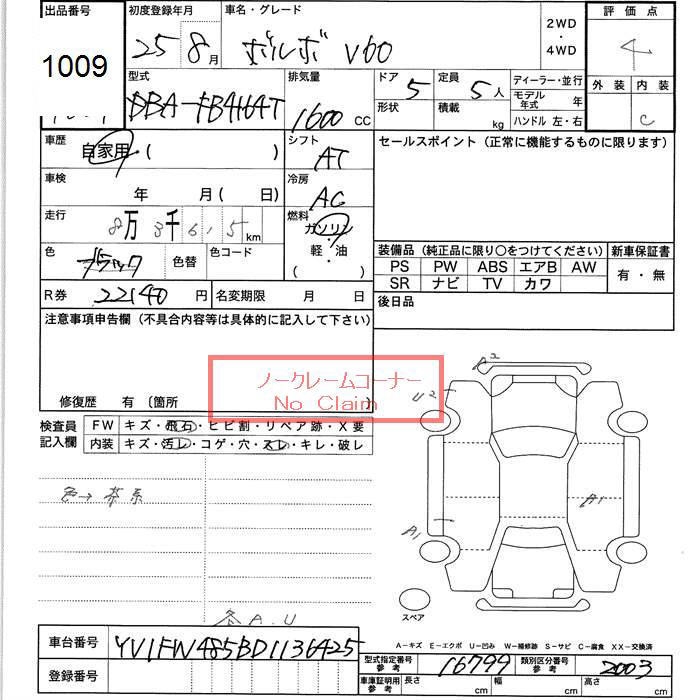 出品番号 初度登録年月 車名・グレード 2WD・4WD 評価点
1009 25 8月 ボルボ V60 4
型式 排気量 ドア 5 定員 5人 ディーラー・並行 外装 内装
形状 積載 kg モデル年式 年
DBA-FB4164T 1600CC ハンドル 左・右 C
車歴 自家用 ( ) シフト AT セールスポイント(正常に機能するものに限ります)
車検 年 月( 日) 冷房 AC
走行 8万3千615km 燃料 ガソリン・軽・油 ( )
色 ブラック 色替 色コード 装備品(純正品に限り○をつけてください) 新車保証書
PS PW ABS エアB AW 有・無
SR ナビ TV カワ
R券 22140円 名変期限 月 日 後日品
注意事項申告欄(不具合内容等は具体的に記入して下さい)
ノークレームコーナー
No Claim
修復歴 有 〔箇所
A2
U2
検査員記入欄 FW キズ・飛石・ヒビ割・リペア跡・X要
内装 キズ・汚レ・コゲ・穴・スレ・キレ・破レ
色→茶系
A1
A1
スペア
各A.U
A-キズ E-エクボ U-凹み W-補修跡 S-サビ C-腐食 XX-交換済
車台番号 YV1FW485BD1136425
型式指定番号 参考 16799 類別区分番号 参考 2003
登録番号 車庫証明用 参考 長さ cm 幅 cm 高さ cm